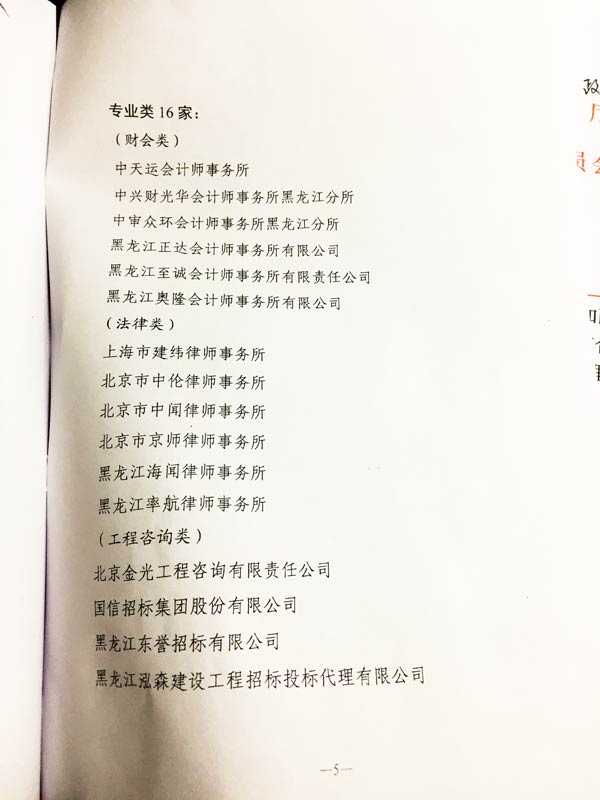 专业类16家：
（财会类）
中天运会计师事务所
中兴财光华会计师事务所黑龙江分所
中审众环会计师事务所黑龙江分所
黑龙江正达会计师事务所有限公司
黑龙江至诚会计师事务所有限责任公司
黑龙江奥隆会计师事务所有限公司
（法律类）
上海市建纬律师事务所
北京市中伦律师事务所
北京市中闻律师事务所
北京市京师律师事务所
黑龙江海闻律师事务所
黑龙江率航律师事务所
（工程咨询类）
北京金光工程咨询有限责任公司
国信招标集团股份有限公司
黑龙江东誉招标有限公司
黑龙江泓森建设工程招标投标代理有限公司
—5—
政
员会